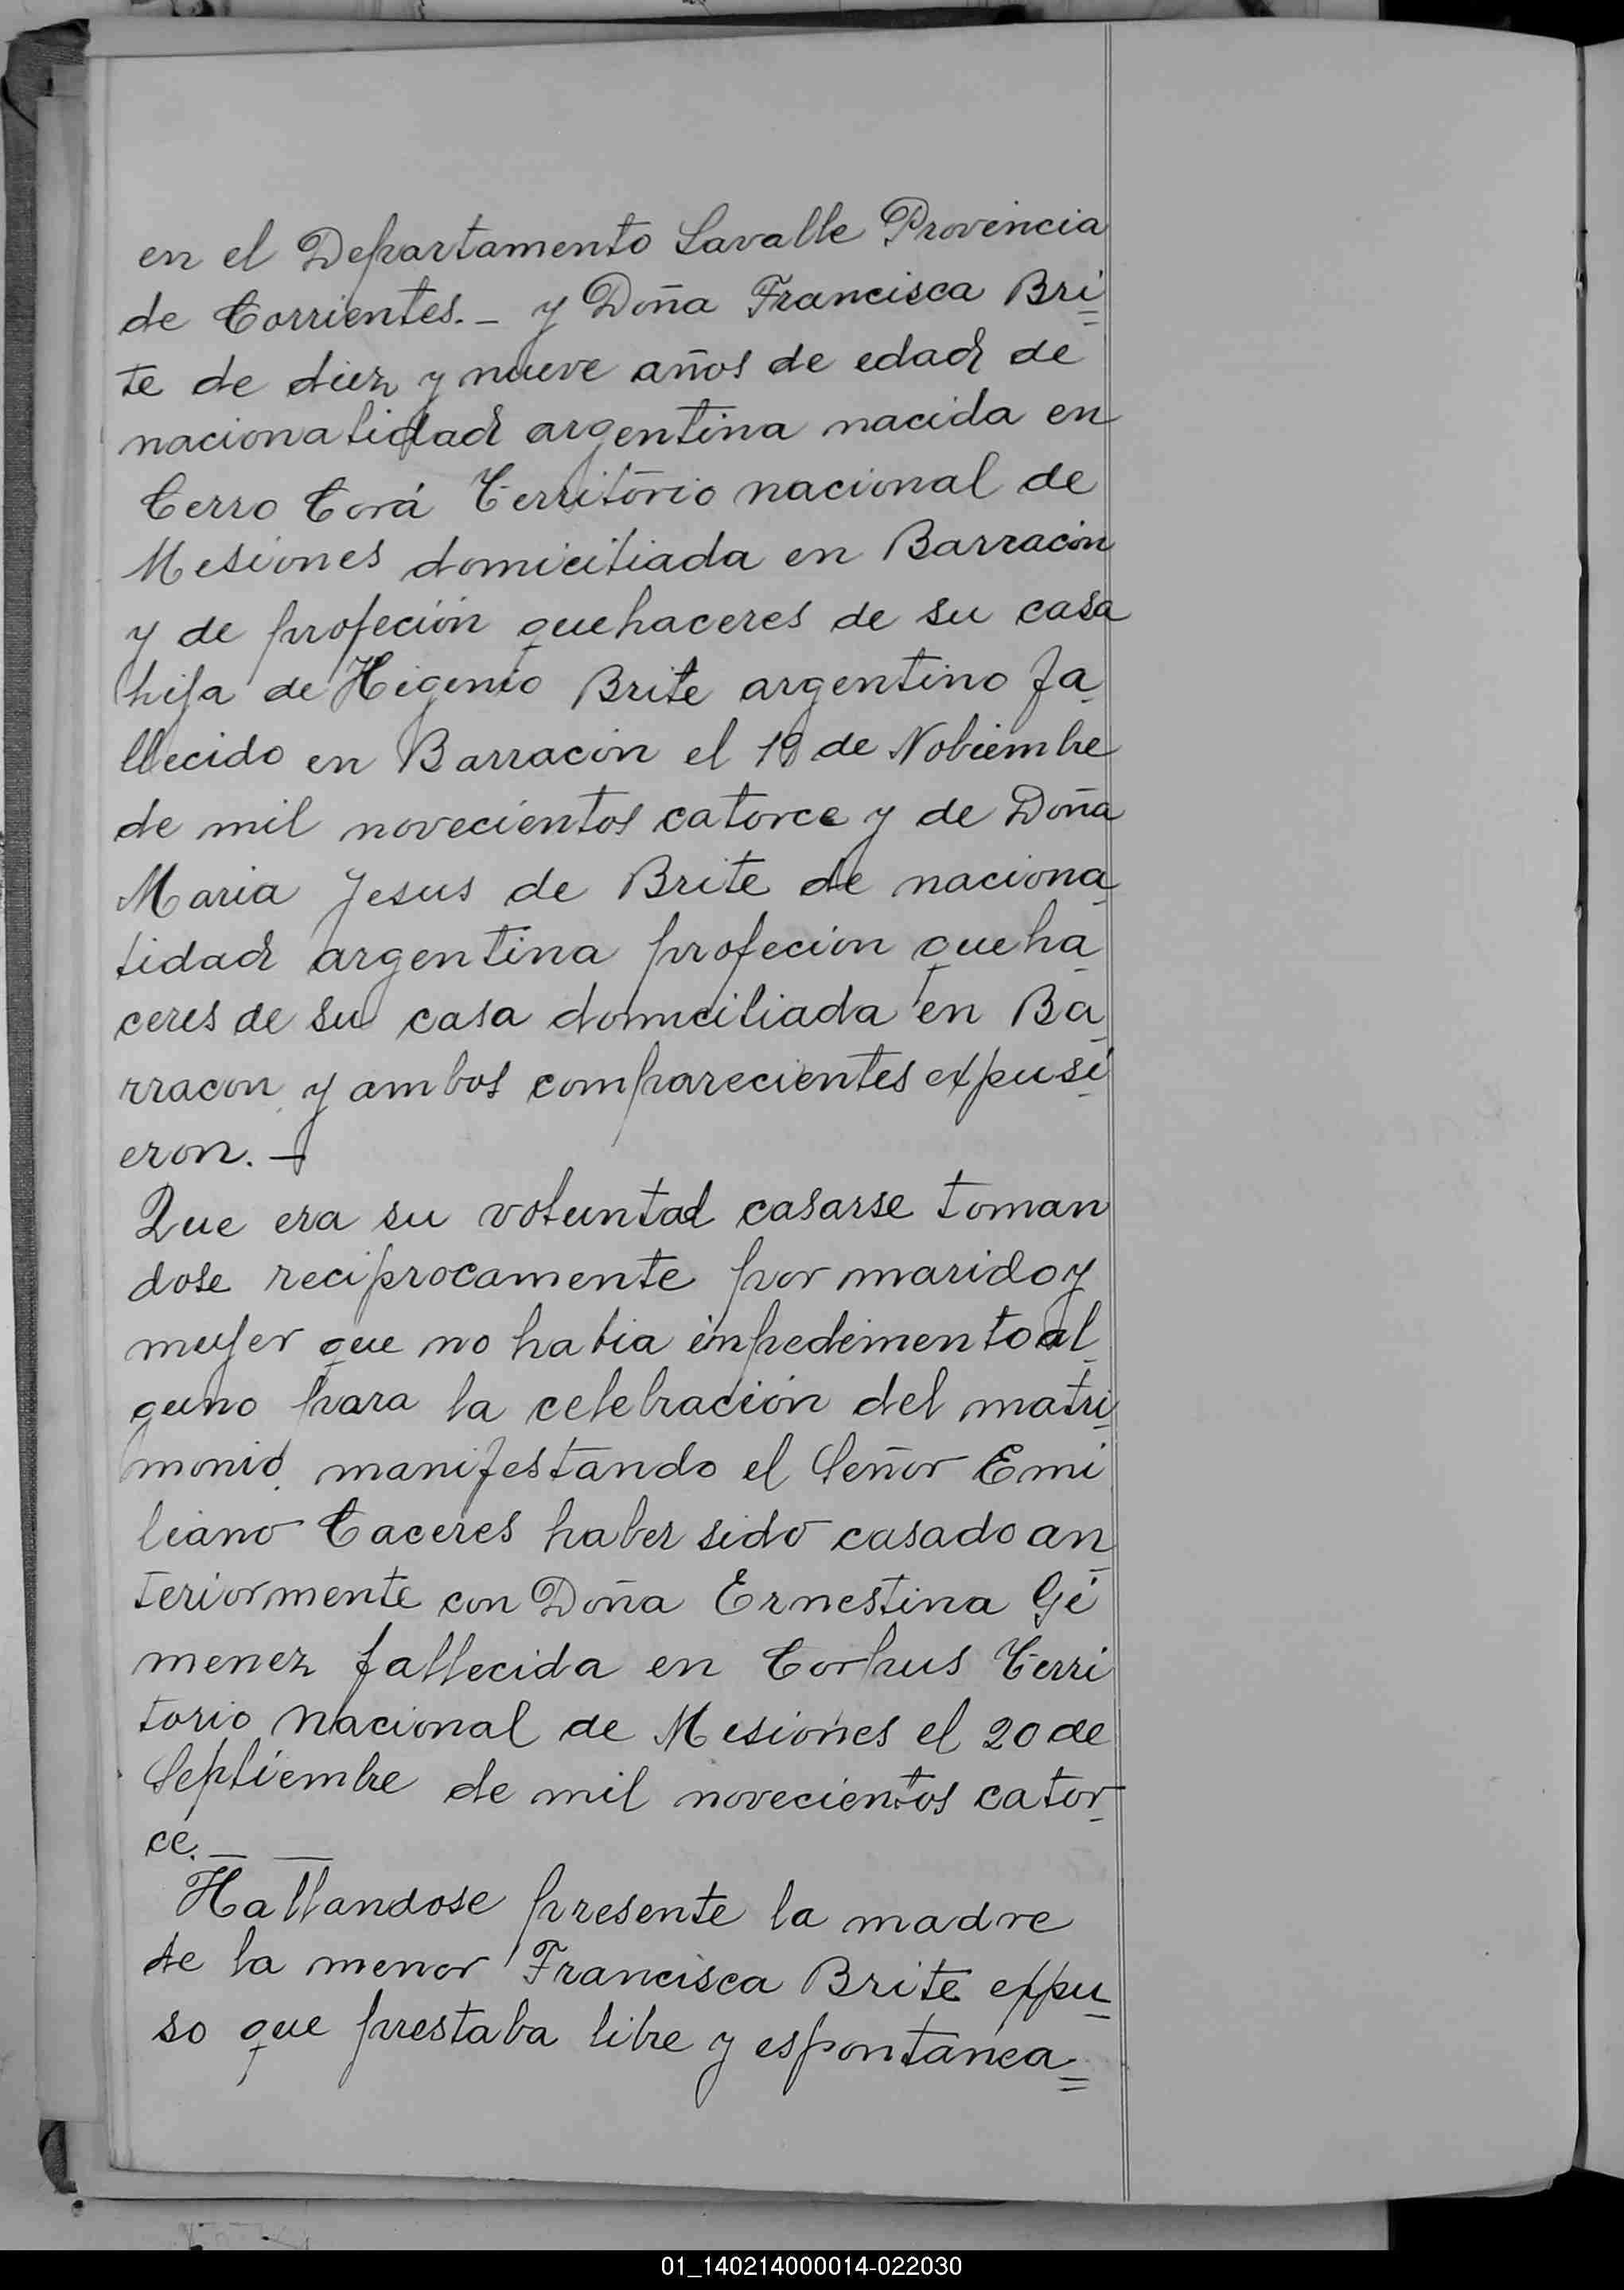 en el Departamento Lavalle Provincia
de Corrientes._ y Doña Francisca Bri=
te de diez y nueve años de edad de
nacionalidad argentina nacida en
Cerro Corá Territorio nacional de
Mesiones domiciliada en Barracón
y de profeción quehaceres de su casa
hija de Higenio Brite argentino fa-
llecido en Barracón el 19 de Nobiembre
de mil novecientos catorce y de Doña
Maria Jesus de Brite de naciona-
lidad argentina profeción queha-
ceres de su casa domiciliada en Ba-
rracon y ambos comparecientes expusi-
eron._
Que era su voluntad casarse toman
dose reciprocamente por marido y
mujer que no habia inpedimento al-
guno para la celebración del matri-
monio manifestando el Señor Emi
liano Caceres haber sido casado an-
teriormente con Doña Ernestina Gi
menez fallecida en Corpus Terri
torio Nacional de Mesiones el 20 de
Septiembre de mil novecientos cator-
ce._ _
Hallandose presente la madre
de la menor Francisca Brite expu-
so que prestaba libre y espontanea=
01_140214000014-022030